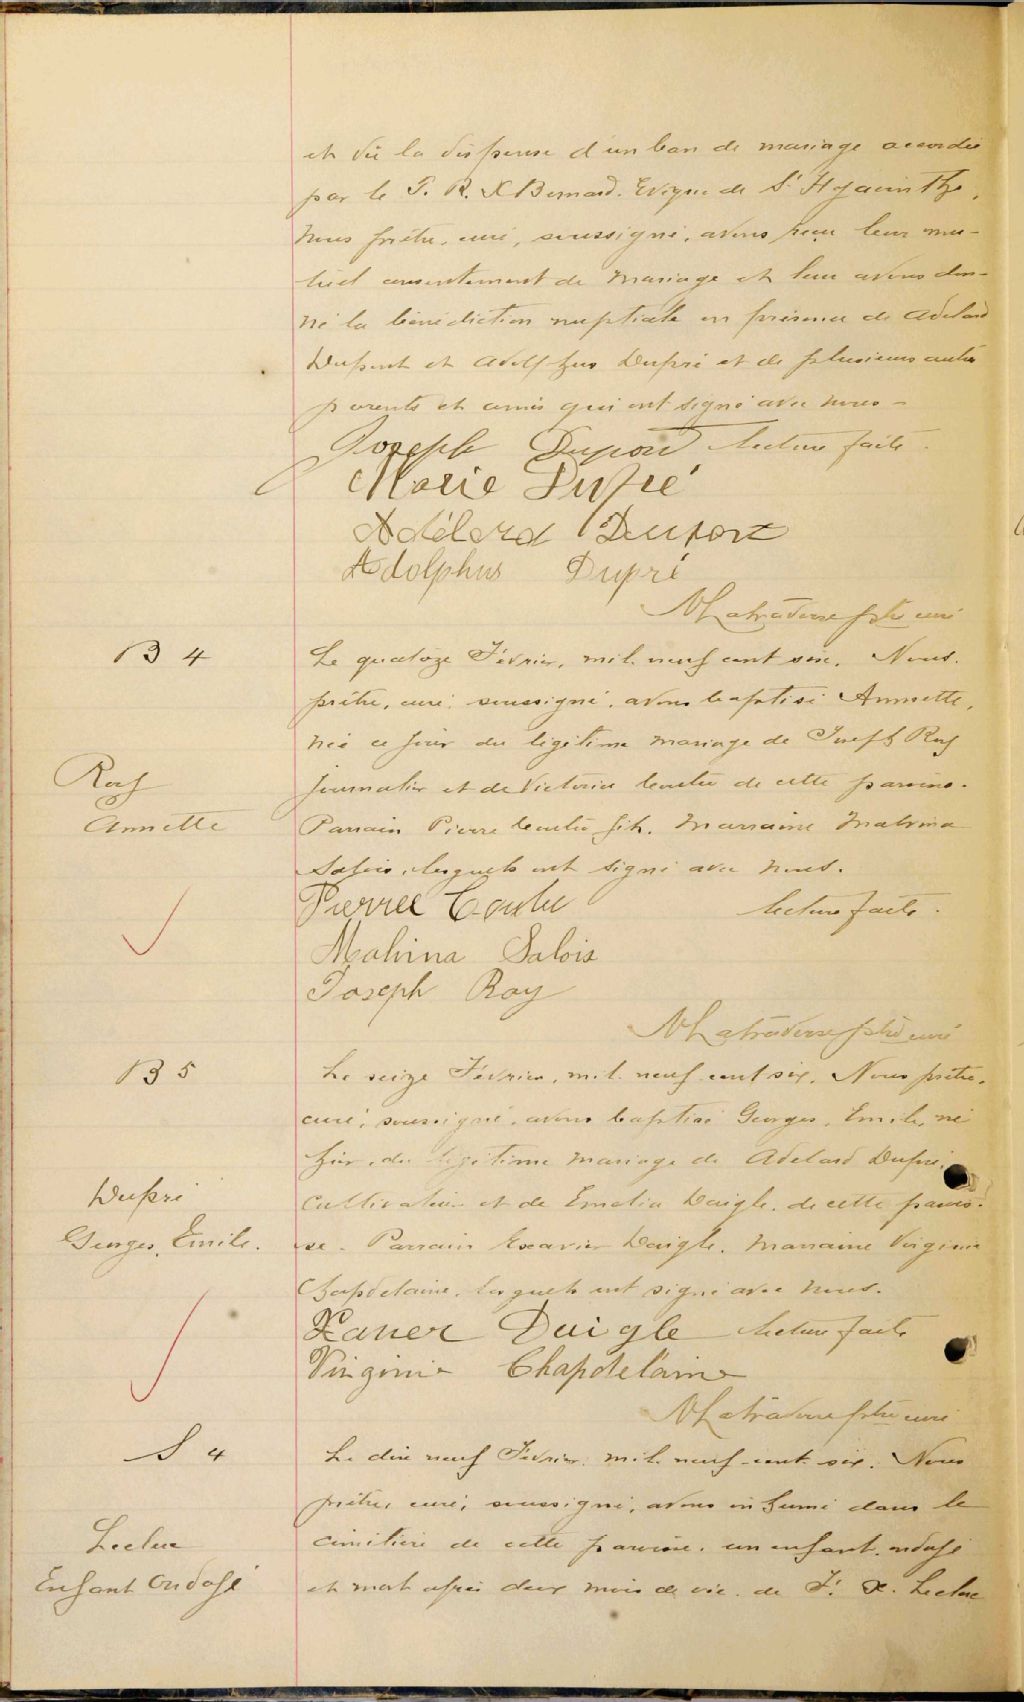 et vu la dispense d'un ban de mariage accordée
par le T. R. X Bernard. Evêque de St Hyacinthe,
Nous prêtre, curé, soussigné, avons reçu leur mu-
tuel consentement de mariage et leur avons don-
né la bénédiction nuptiale en présence de Adelard
Dupont et Adolphus Dupré et de plusieurs autres
parents et amis qui ont signé avec nous -
Joseph Dupont lecture faite.
Marie Dupré
Adélard Dupont
Adolphus Dupré
ptre curé
B 4
Le quatorze Février, mil neuf cent six. Nous.
prêtre, curé, soussigné, avons baptisé Annette,
née ce jour du légitime mariage de Joseph Roy
Roy
journalier et de Victoria Coutu de cette paroisse.
Annette
Parrain Pierre Coutu fils. Marraine Malvina
Salois, lesquels ont signé avec nous.
Pierre Coutu lecture faite.
Malvina Salois
Joseph Roy
ptre curé
B 5
Le seize Février, mil neuf cent six, Nous prêtre,
curé, soussigné, avons baptisé Georges, Emile, né
hier, du légitime mariage de Adelard Dupré,
Dupré
cultivateur et de Emelia Daigle, de cette parois-
Georges, Emile.
se. Parrain Exavier Daigle. Marraine Virginie
Chapdelaine, lesquels ont signé avec nous.
Xavier Daigle lecture faite
Virginie Chapdelaine
ptre curé
S 4
Le dix neuf Février, mil neuf-cent six. Nous
prêtre, curé, soussigné, avons inhumé dans le
Leclerc
cimetière de cette paroisse, un enfant, ondoyé
Enfant Ondoyé
et mort après deux mois de vie. de F. X. Leclerc